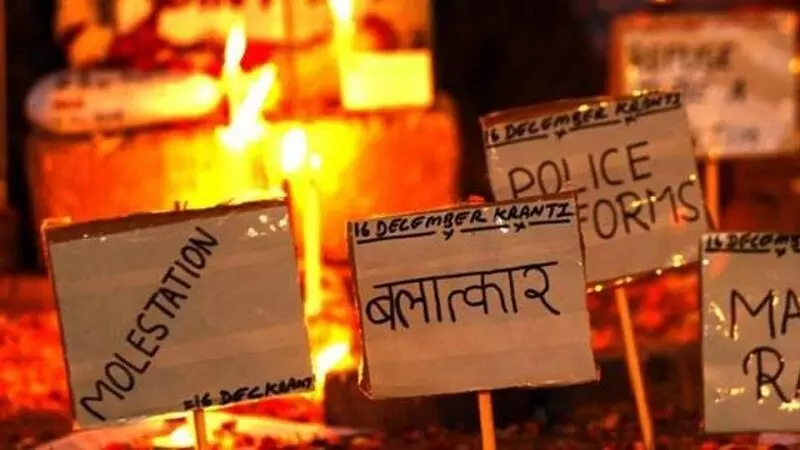 MOLESTATION
=16 DEC KRANTI
16 DECEMBER KRANTI
बलात्कार
16 DECEMBER KRANTI
POLICE
FORMS
16 DECEMBER
MA
RA
REFUSE
A